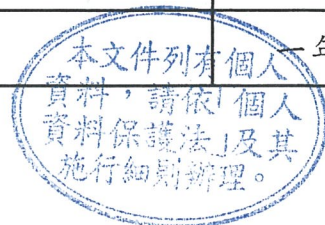 一年
本文件列有個人
資料，請依「個人
資料保護法」及其
施行細則辦理。